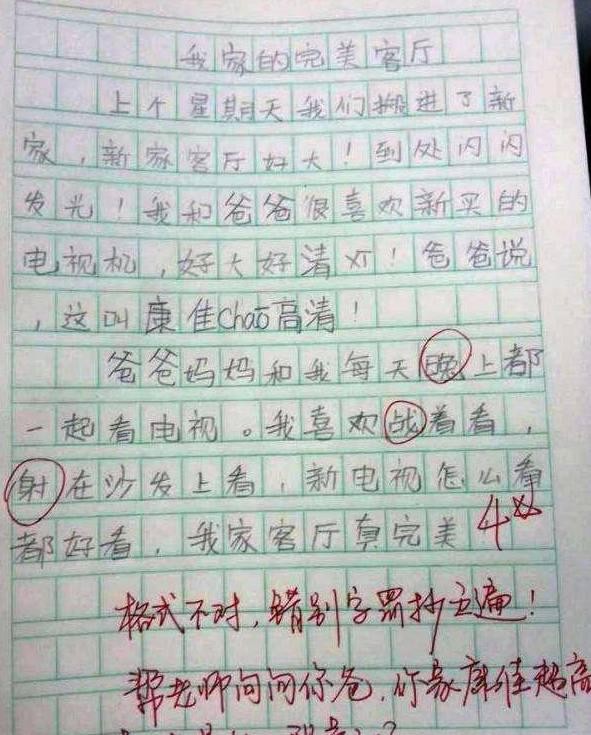 我家的完美客厅
上个星期天我们搬进了新
家，新家客厅好大！到处闪闪
发光！我和爸爸很喜欢新买的
电视机，好大好清 ！爸爸说
，这叫康佳Chāo高清！
爸爸妈妈和我每天晚上都
一起看电视。我喜欢战着看，
射在沙发上看，新电视怎么看
都好看，我家客厅真完美
4处
格式不对，错别字罚抄五遍！
帮老师问问你爸，你家康佳超高